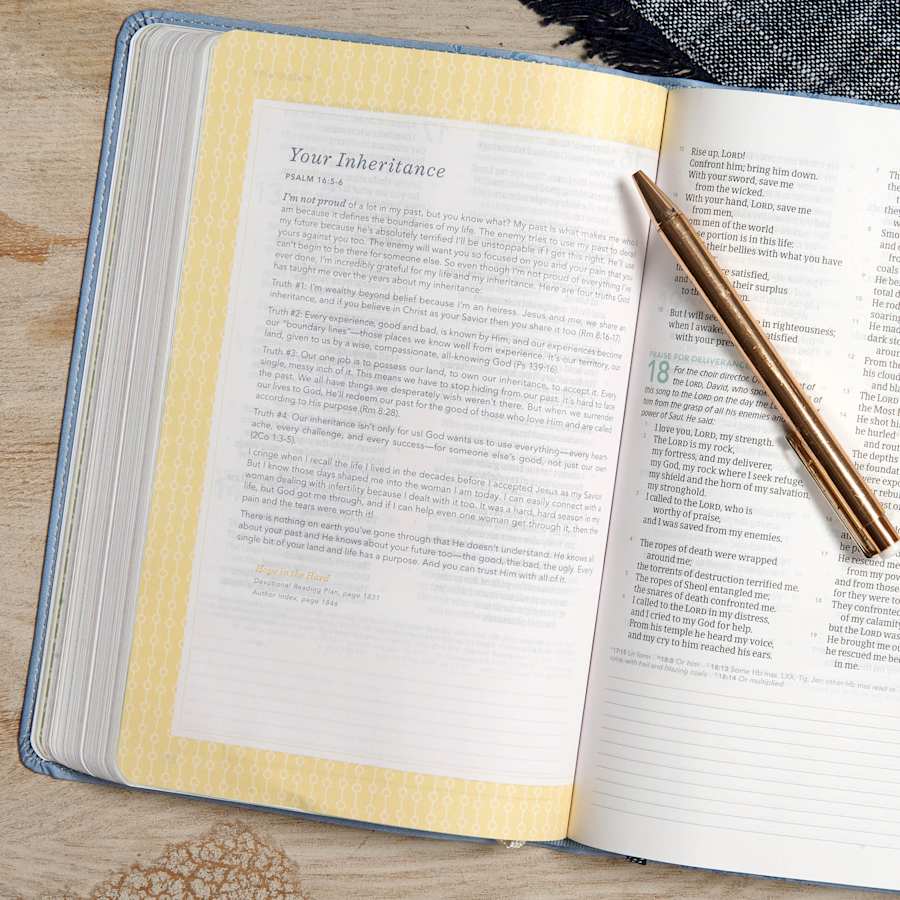 Your Inheritance
PSALM 16:5-6
I'm not proud of a lot in my past, but you know what? My past is what makes me who I
am because it defines the boundaries of my life. The enemy tries to use my past to derail
my future because he's absolutely terrified I'll be unstoppable if I get this right. He'll use
yours against you too. The enemy will want you so focused on you and your pain that you
can't begin to be there for someone else. So even though I'm not proud of everything I've
ever done, I'm incredibly grateful for my life and my inheritance. Here are four truths God
has taught me over the years about my inheritance.
Truth #1: I'm wealthy beyond belief because I'm an heiress. Jesus and me, we share an
inheritance, and if you believe in Christ as your Savior then you share it too (Rm 8:16-17).
Truth #2: Every experience, good and bad, is known by Him, and our experiences become
our "boundary lines"—those places we know well from experience. It's our territory, our
land, given to us by a wise, compassionate, all-knowing God (Ps 139:16).
Truth #3: Our one job is to possess our land, to own our inheritance, to accept it. Every
single, messy inch of it. This means we have to stop hiding from our past. It's hard to face
the past. We all have things we desperately wish weren't there. But when we surrender
our lives to God, He'll redeem our past for the good of those who love Him and are called
according to His purpose (Rm 8:28).
Truth #4: Our inheritance isn't only for us! God wants us to use everything—every heart-
ache, every challenge, and every success—for someone else's good, not just our own
(2Co 1:3-5).
I cringe when I recall the life I lived in the decades before I accepted Jesus as my Savior.
But I know those days shaped me into the woman I am today. I can easily connect with a
woman dealing with infertility because I dealt with it too. It was a hard, hard season in my
life, but God got me through, and if I can help even one woman get through it, then the
pain and the tears were worth it!
There is nothing on earth you've gone through that He doesn't understand. He knows all
about your past and He knows about your future too—the good, the bad, the ugly. Every
single bit of your land and life has a purpose. And you can trust Him with all of it.
Hope in the Hard
Devotional Reading Plan, page 1831
Author Index, page 1846
13 Rise up, LORD!
Confront him; bring him down.
With your sword, save me
from the wicked.
14 With your hand, LORD, save me
from men,
from men of the world
portion is in this life:
their bellies with what you have
satisfied,
their surplus
to
15 But I will see in righteousness;
when I awake, satisfied
with your
PRAISE FOR DELIVERANCE
18 For the choir director. Of
the LORD, David, who spoke of
this song to the LORD on the day the of
him from the grasp of all his enemies and
power of Saul. He said:
1 I love you, LORD, my strength.
2 The LORD is my rock,
my fortress, and my deliverer,
my God, my rock where I seek refuge,
my shield and the horn of my salvation,
my stronghold.
3 I called to the LORD, who is
worthy of praise,
and I was saved from my enemies.
4 The ropes of death were wrapped
around me;
the torrents of destruction terrified me.
5 The ropes of Sheol entangled me;
the snares of death confronted me.
6 I called to the LORD in my distress,
and I cried to my God for help.
From his temple he heard my voice,
and my cry to him reached his ears.
7 Th
they
8 Smo
and
coals
9 He be
total d
10 He rod
soaring
11 He made
dark sto
around
12 From the
his cloud
and bla
13 The LORD
the Most
14 He shot hi
he hurled
and rout
15 The depths
the foundat
exposed
at your rebu
17 He rescued me
from my pow
and from those
for they were to
18 They confronted
of my calamity
but the LORD was
19 He brought me ou
he rescued me bec
in me.